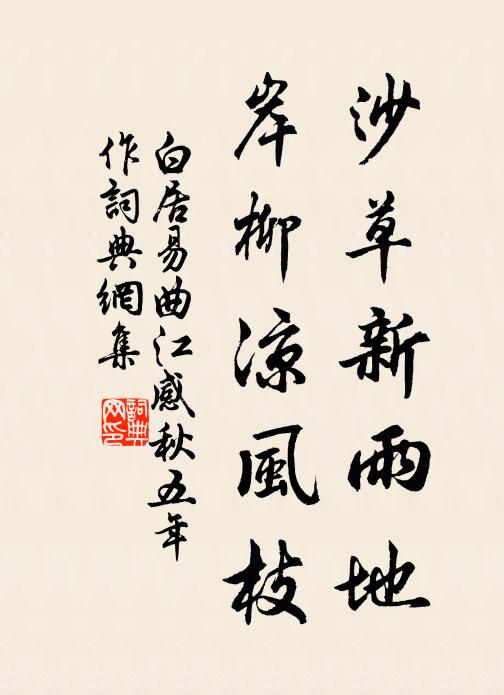 沙草新雨地
岸柳涼風枝
白居易曲江感秋五年
作詞典網集
詞典
网印